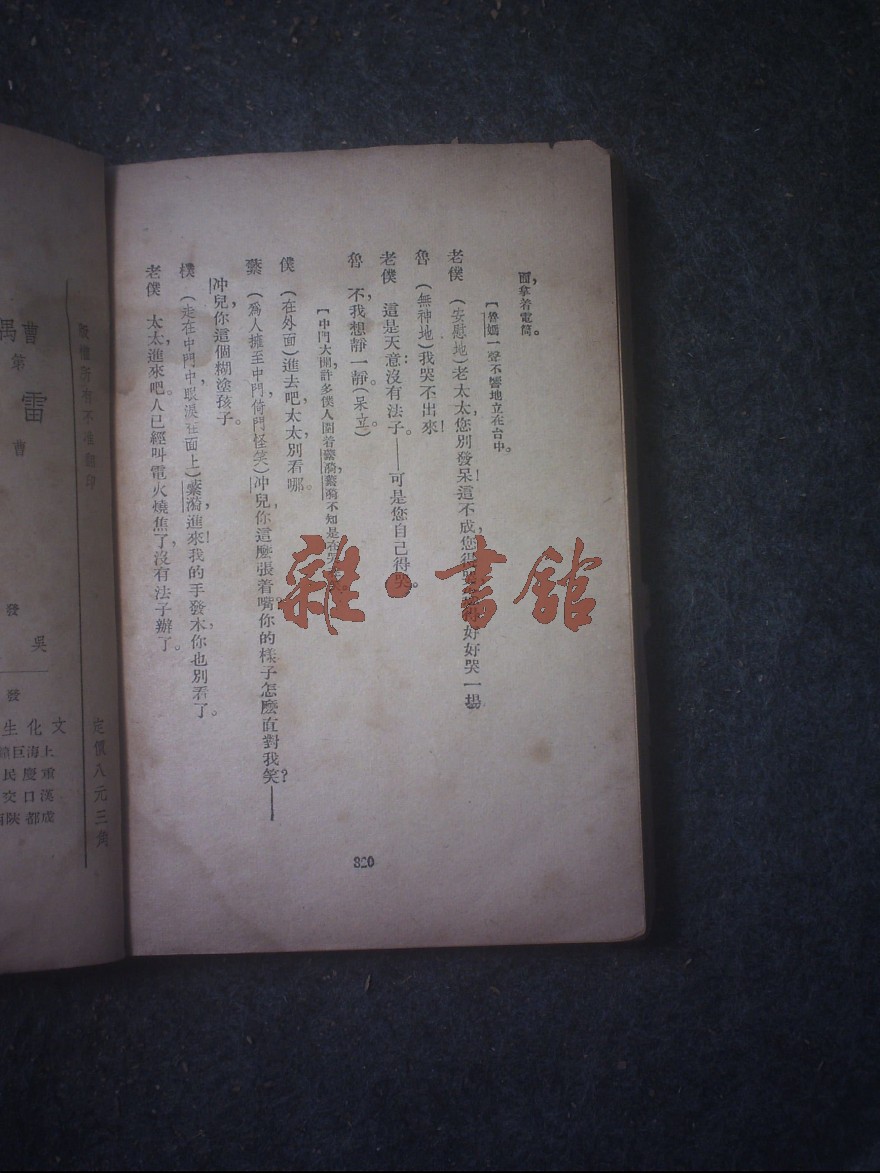 面拿着電筒。
【魯媽一聲不響地立在台中。
老僕 (安慰地)老太太,您別發呆!這不成,您得哭,您得好好哭一場
魯 (無神地)我哭不出來!
老僕 這是天意,沒有法子。——可是您自己得哭。
魯 不,我想靜一靜。(呆立)
【中門大開,許多僕人圍着蘩漪,蘩漪不知是在哭
僕 (在外面)進去吧,太太,別看哪。
蘩 (爲人擁至中門,倚門怪笑)冲兒,你這麼張着嘴?你的樣子怎麼直對我笑?——
冲兒,你這個糊塗孩子。
樸 (走在中門中,眼淚在面上)蘩漪,進來!我的手發木,你也別看了。
老僕 太太,進來吧。人已經叫電火燒焦了,沒有法子辦了。
320
雜·書館
版權所有不准翻印
定價八元三角
曹禺
第
雷
曹
發
吳
發
文化生
上海巨
重慶民
漢口交
成都陝